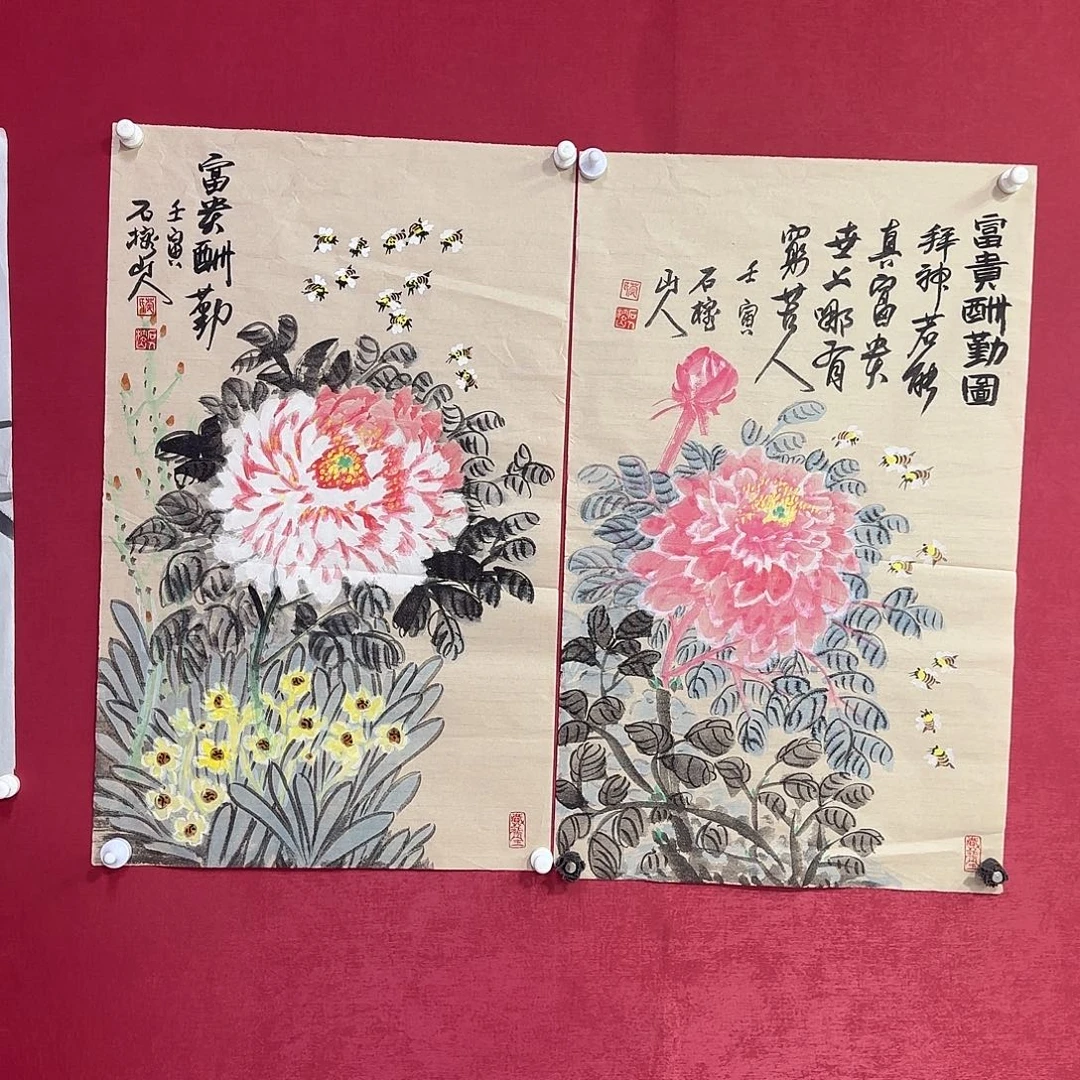 富貴酬勤
壬寅
石橑山人
富貴酬勤圖
拜神若能
真富贵
世上哪有
窮苦人
壬寅
石橑
山人